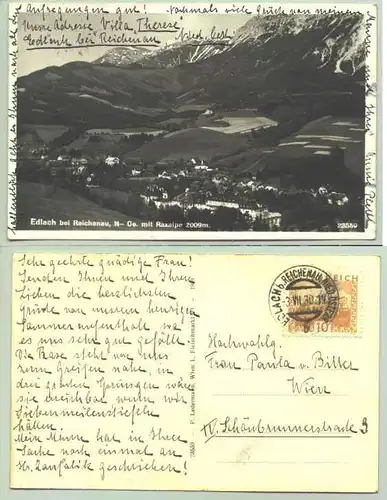 Aufregungen gut! Nochmals viele Grüße von meinem
Unsere Adresse Villa Therese
Edlach bei Reichenau Nied. Oest.
Edlach bei Reichenau, N.-Oe. mit Raxalpe 2009m.
23580
Sehr geehrte gnädige Frau!
Senden Ihnen und Ihren
Lieben die herzlichsten
Grüße von unserem heurigen
Sommeraufenthalt wo
es uns sehr gut gefällt
Die Raxe steht vor uns
zum Greifen nahe, in
drei großen Sprüngen wäre
sie erreichbar wenn wir
Siebenmeilenstiefeln
hätten.
Mein Mann hat in Ihrer
Sache noch einmal an
geschrieben!
P. Ledermann, Wien I., Fleischmarkt
EDLACH b. REICHENAU
3.VII.30
REICH
10
Hochwohlg.
Frau Paula v.
Wien
IV. Schönbrunnerstraße 3